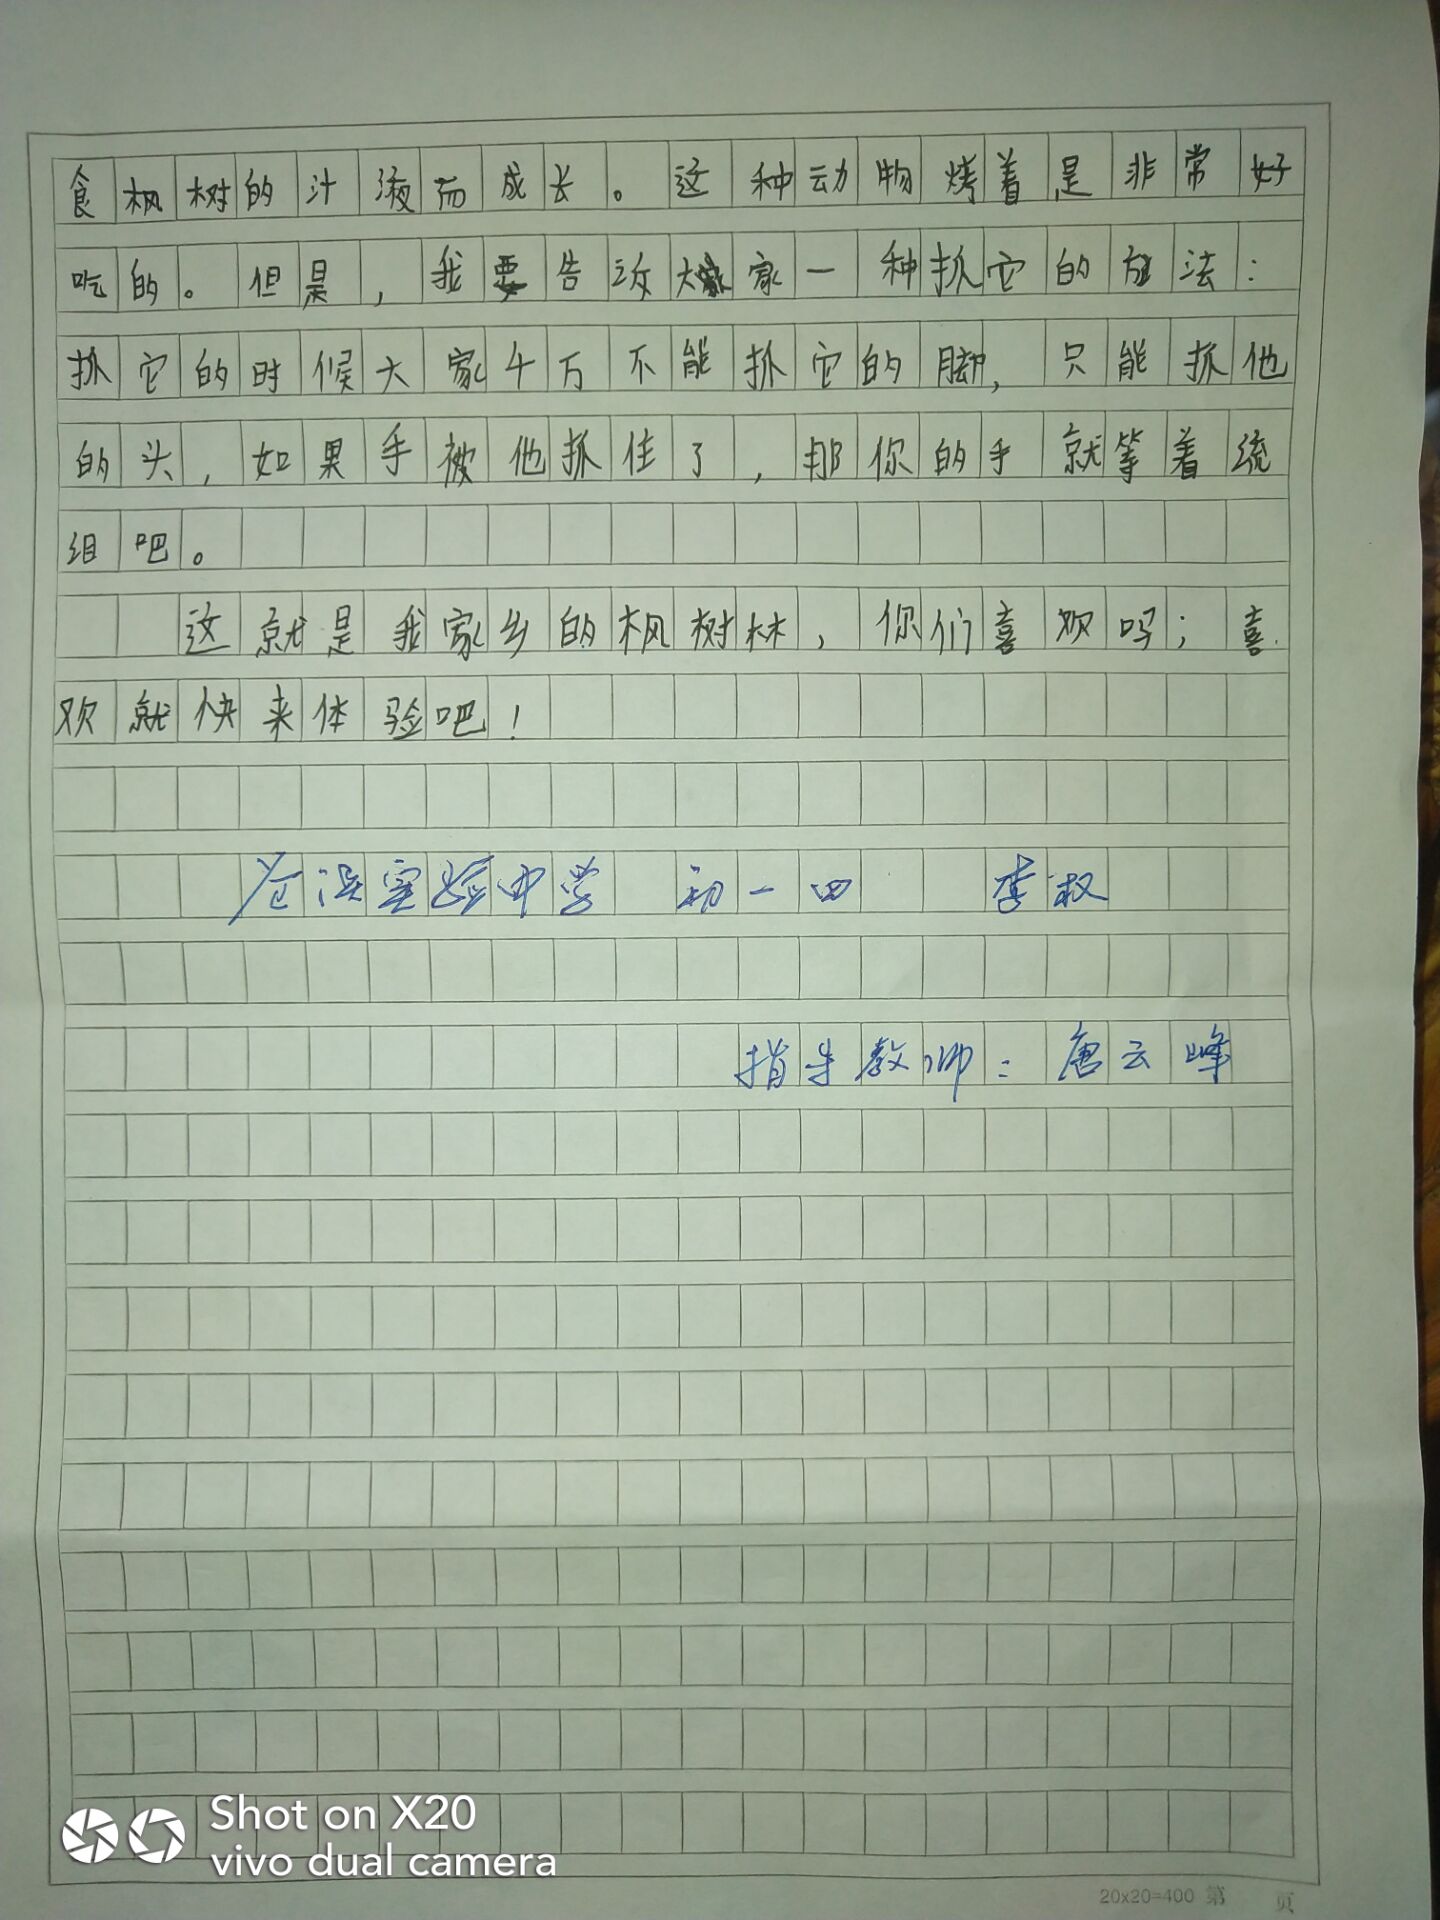 食枫树的汁液而成长。这种动物烤着是非常好
吃的。但是，我要告汝大家一种抓它的方法：
抓它的时候大家千万不能抓它的脚，只能抓他
的头，如果手被他抓住了，那你的手就等着流
组吧。
这就是我家乡的枫树林，你们喜欢吗；喜
欢就快来体验吧！
实验中学 初一四 李权
指导教师：唐云峰
Shot on X20
vivo dual camera
20x20=400 第 页